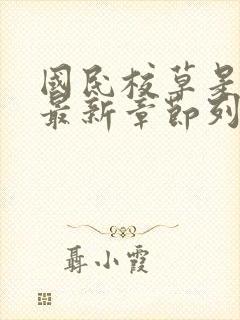 國民校草是
最新章節列
聶小霞